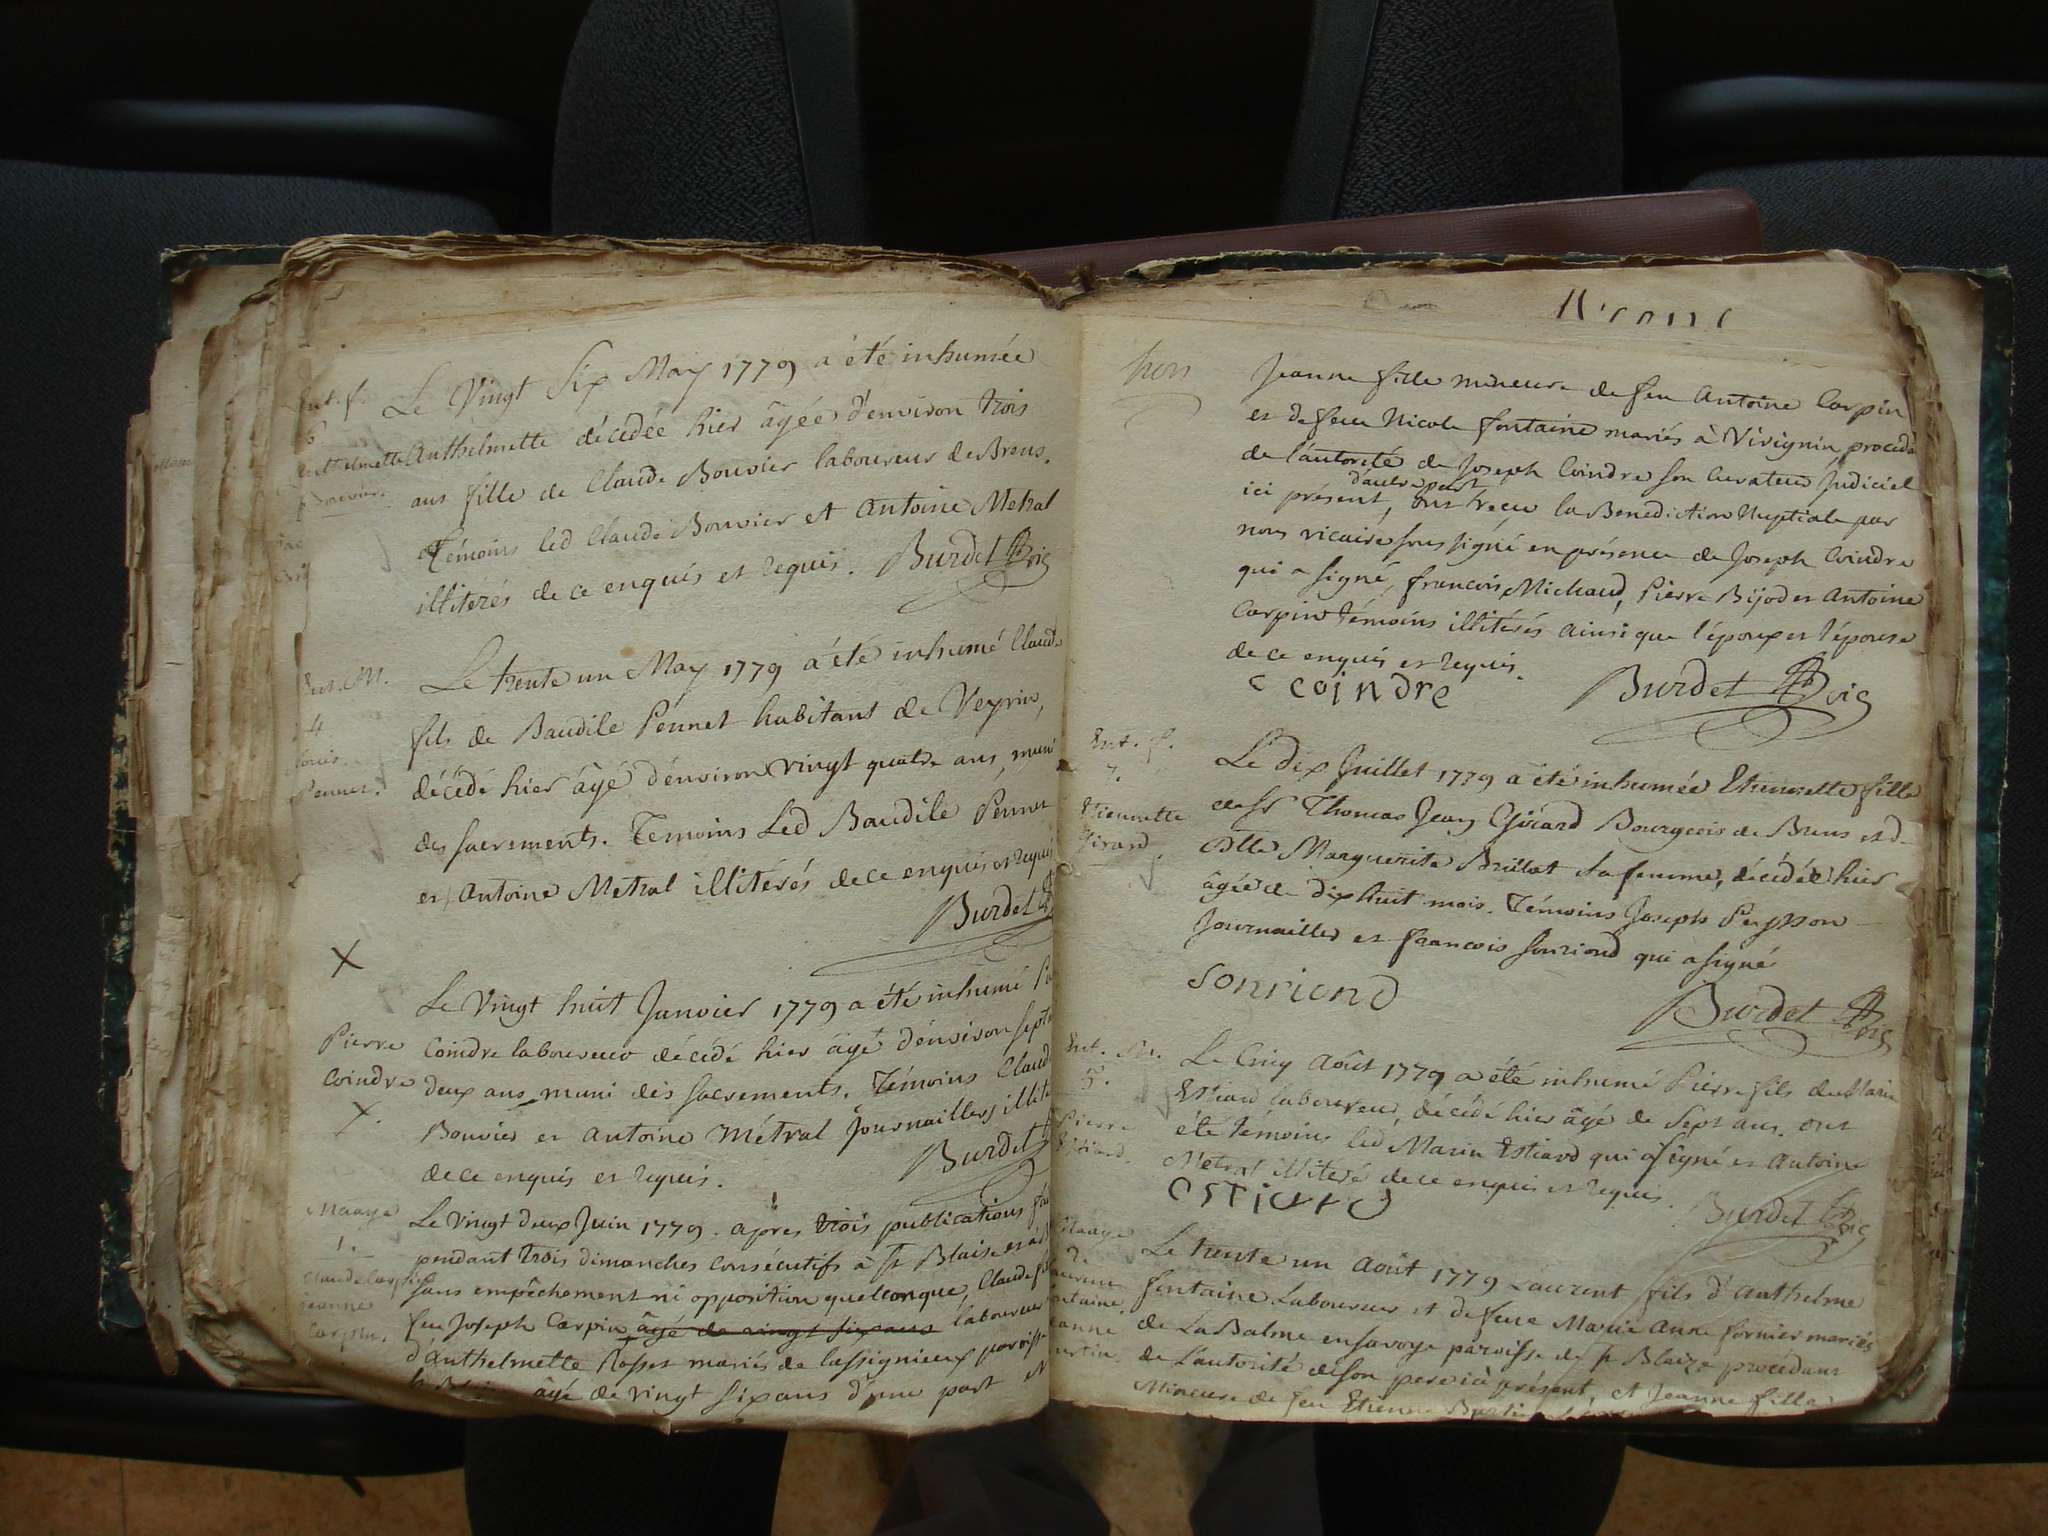 Ent. f.
6.
Anthelmette
Bouvier
Le Vingt Six May 1779 a été inhumée
Anthelmette décédée hier âgée d'environ trois
ans fille de Claude Bouvier laboureur de Brens.
Témoins led Claude Bouvier et Antoine Metral
illitérés de ce enquis et requis. Burdet Vic
Ent. M.
4.
Pennet.
Le trente un May 1779 a été inhumé Claude
fils de Baudile Pennet habitant de Veyrin,
décédé hier âgé d'environ vingt quatre ans, muni
des sacrements. Temoins Led Baudile Pennet
et Antoine Metral illitérés de ce enquis et requis
Burdet
X
Pierre
Coindre
X.
Le Vingt huit Janvier 1779 a été inhumé
Coindre laboureur décédé hier âgé d'environ
deux ans, muni des sacrements. Témoins Claude
Bouvier et Antoine Métral Journaillers
de ce enquis et requis. Burdet
Maage
1.
Claude Carpin
jeanne
Carpin.
Le Vingt deux Juin 1779. apres trois publications
pendant trois dimanches consécutifs à st Blaise
sans empêchement ni opposition quelconque, Claude
feu Joseph Carpin âgé de vingt six ans laboureur
d'Anthelmette Rosset mariés de lassignieux paroisse
âgé de vingt six ans d'une part
hors
Jeanne fille mineure de feu Antoine Carpin
et de feue Nicole fontaine mariés à Virignin procéda
de l'autorité de Joseph Coindre son Curateur Judiciel
d'autre part
ici présent, ont recu la Benediction Nuptiale par
nous vicaire soussigné en présence de Joseph Coindre
qui a signé, francois Michaud, Pierre Bijod et Antoine
Carpin témoins illitérés ainsi que l'époux et l'épouse
de ce enquis et requis.
c coindre Burdet Vic
Ent. f.
7.
Etiennette
Girard.
Le dix Juillet 1779 a été inhumée Etiennette fille
de Sr Thomas Jean Girard Bourgeois de Brens et d
Dlle Marguerite Brillat sa femme, décédée hier
âgée de dix huit mois. Témoins Joseph Peysson
Journaillier et francois sonriond qui a signé
sonriond
Burdet Vic
Ent. M.
5.
Pierre
Estiard.
Le Cinq Août 1779 a été inhumé Pierre fils de Marin
Estiard laboureur, décédé hier âgé de Sept ans. ont
été témoins led Marin Estiard qui a signé et Antoine
Metral illiteré de ce enquis et requis.
Burdet Vic
Maage
2.
Laurent
fontaine
Jeanne
Le trente un Août 1779 Laurent fils d'Anthelme
fontaine Laboureur et de feue Marie Anne fornier mariés
de La Balme en savoye paroisse de st Blaize procédant
de l'autorité de son pere ici présent, et Jeanne fille
Mineure de feu Etienne